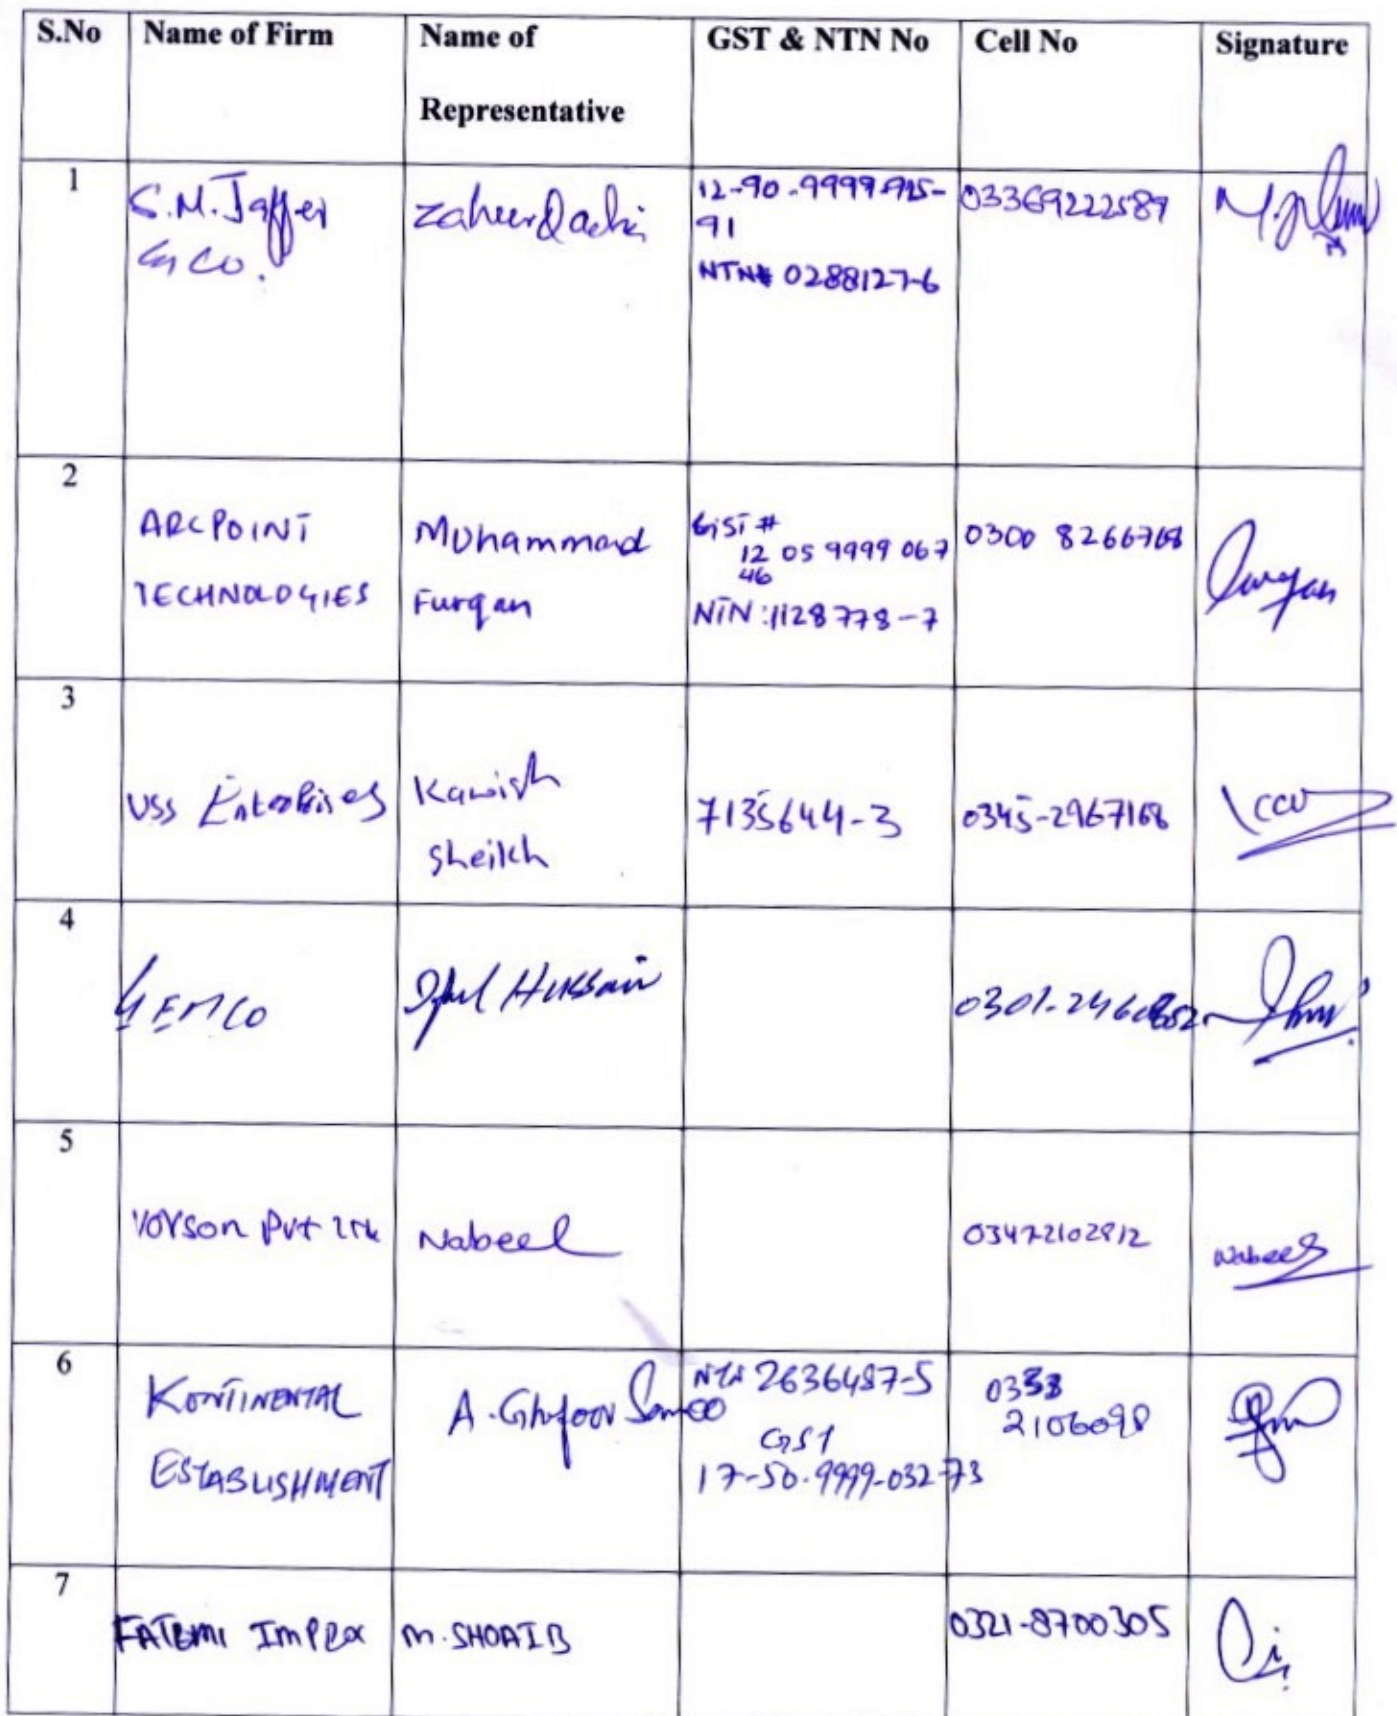 S.No Name of Firm Name of Representative GST & NTN No Cell No Signature
1
S.M. Jaffer
& Co.
Zaheer
12-90-9999-915-
91
NTN# 0288127-6
03369222589
2
ARCPOINT
TECHNOLOGIES
Muhammad
Furqan
GST #
12 05 9999 067
46
NTN: 1128778-7
0300 8266768
Furqan
3
USS Enterprises
Kawish
Sheikh
7135644-3
0345-2967168
4
GEMCO
Hussain
0301-
5
Vorson Pvt Ltd
Nabeel
03472102812
Nabeel
6
KONTINENTAL
ESTABLISHMENT
A. Ghafoor Soomro
NTN 2636487-5
GST
17-50-9999-032-73
0333
2106098
7
FATEMI IMPEX
M. SHOAIB
0321-8700305